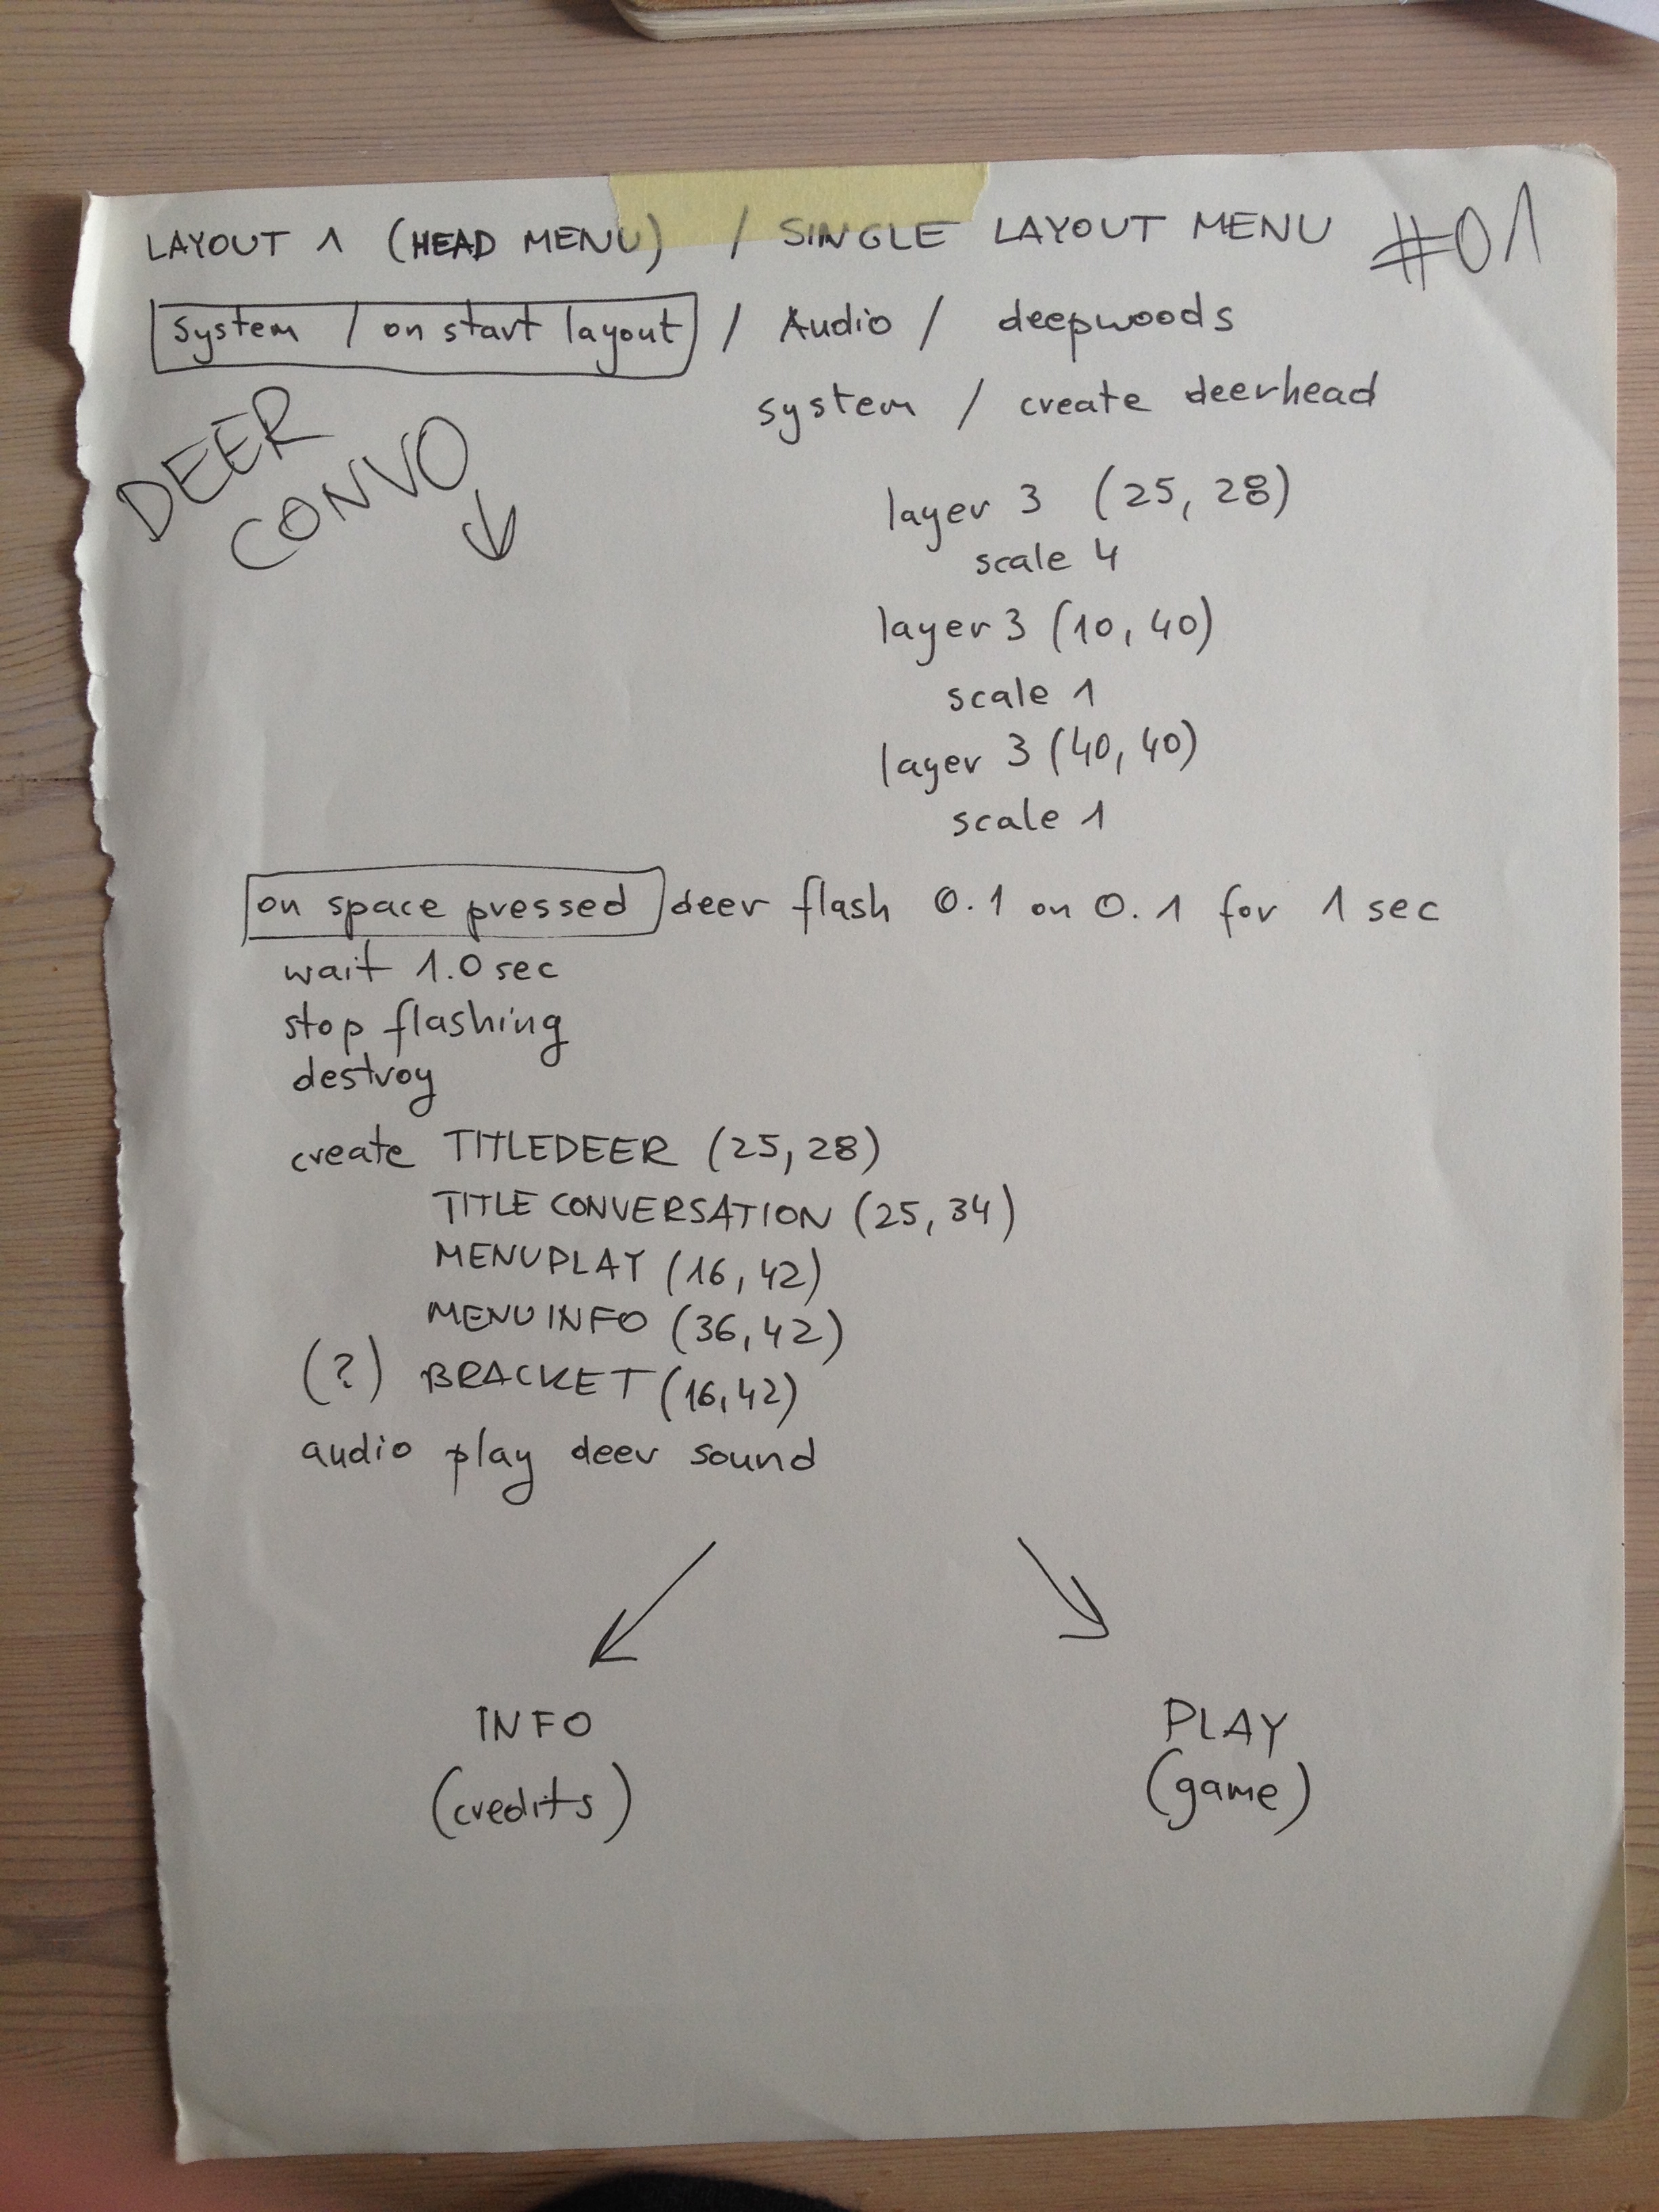 LAYOUT 1 (HEAD MENU) / SINGLE LAYOUT MENU #01
System / on start layout / Audio / deepwoods
system / create deerhead
DEER
CONVO
layer 3 (25, 28)
scale 4
layer 3 (10, 40)
scale 1
layer 3 (40, 40)
scale 1
on space pressed deer flash 0.1 on 0.1 for 1 sec
wait 1.0 sec
stop flashing
destroy
create TITLEDEER (25, 28)
TITLE CONVERSATION (25, 34)
MENUPLAY (16, 42)
MENU INFO (36, 42)
(?) BRACKET (16, 42)
audio play deer sound
INFO PLAY
(credits) (game)